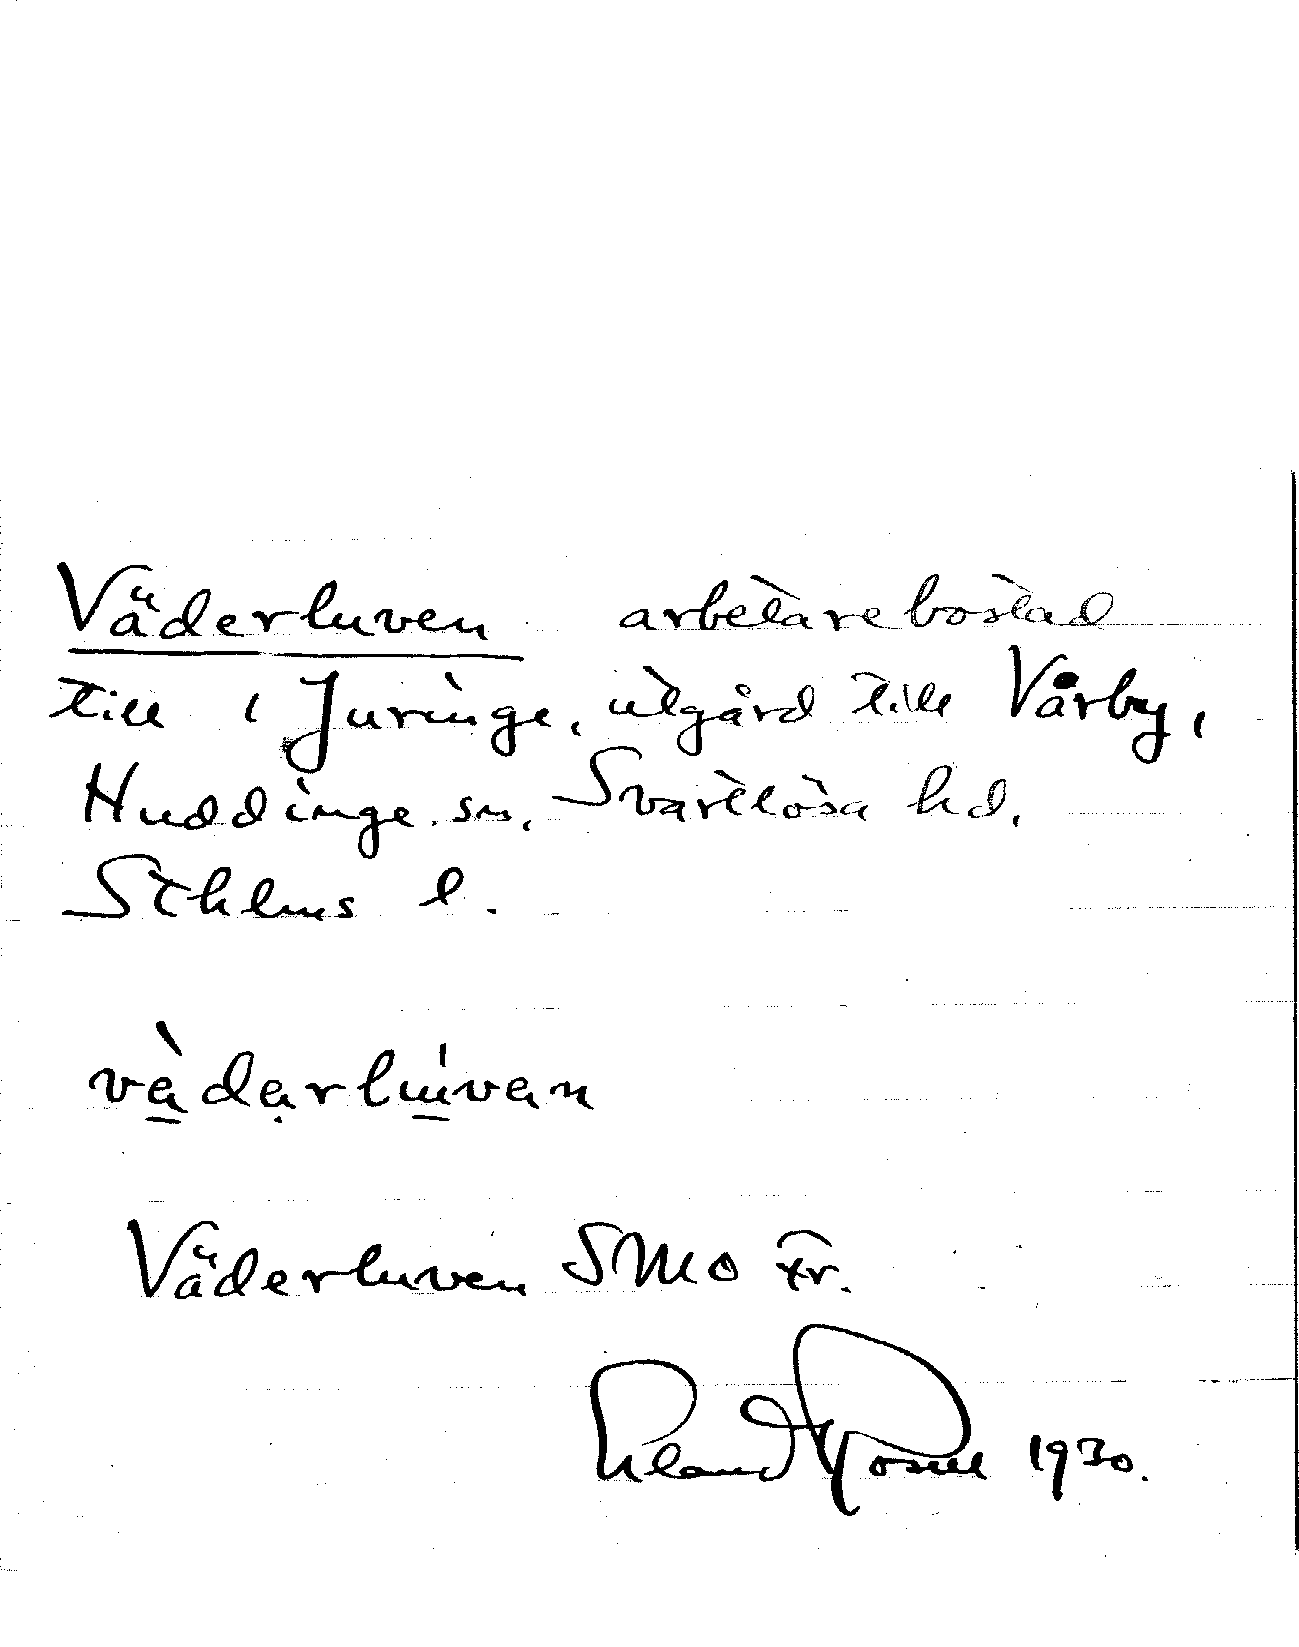 Väderluven arbetarebostad
till 1 Juringe, utgård till Vårby,
Huddinge sn, Svartlösa hd,
Sthlms l.
vàdạrlúvan
Väderluven SMO fr.
1930.